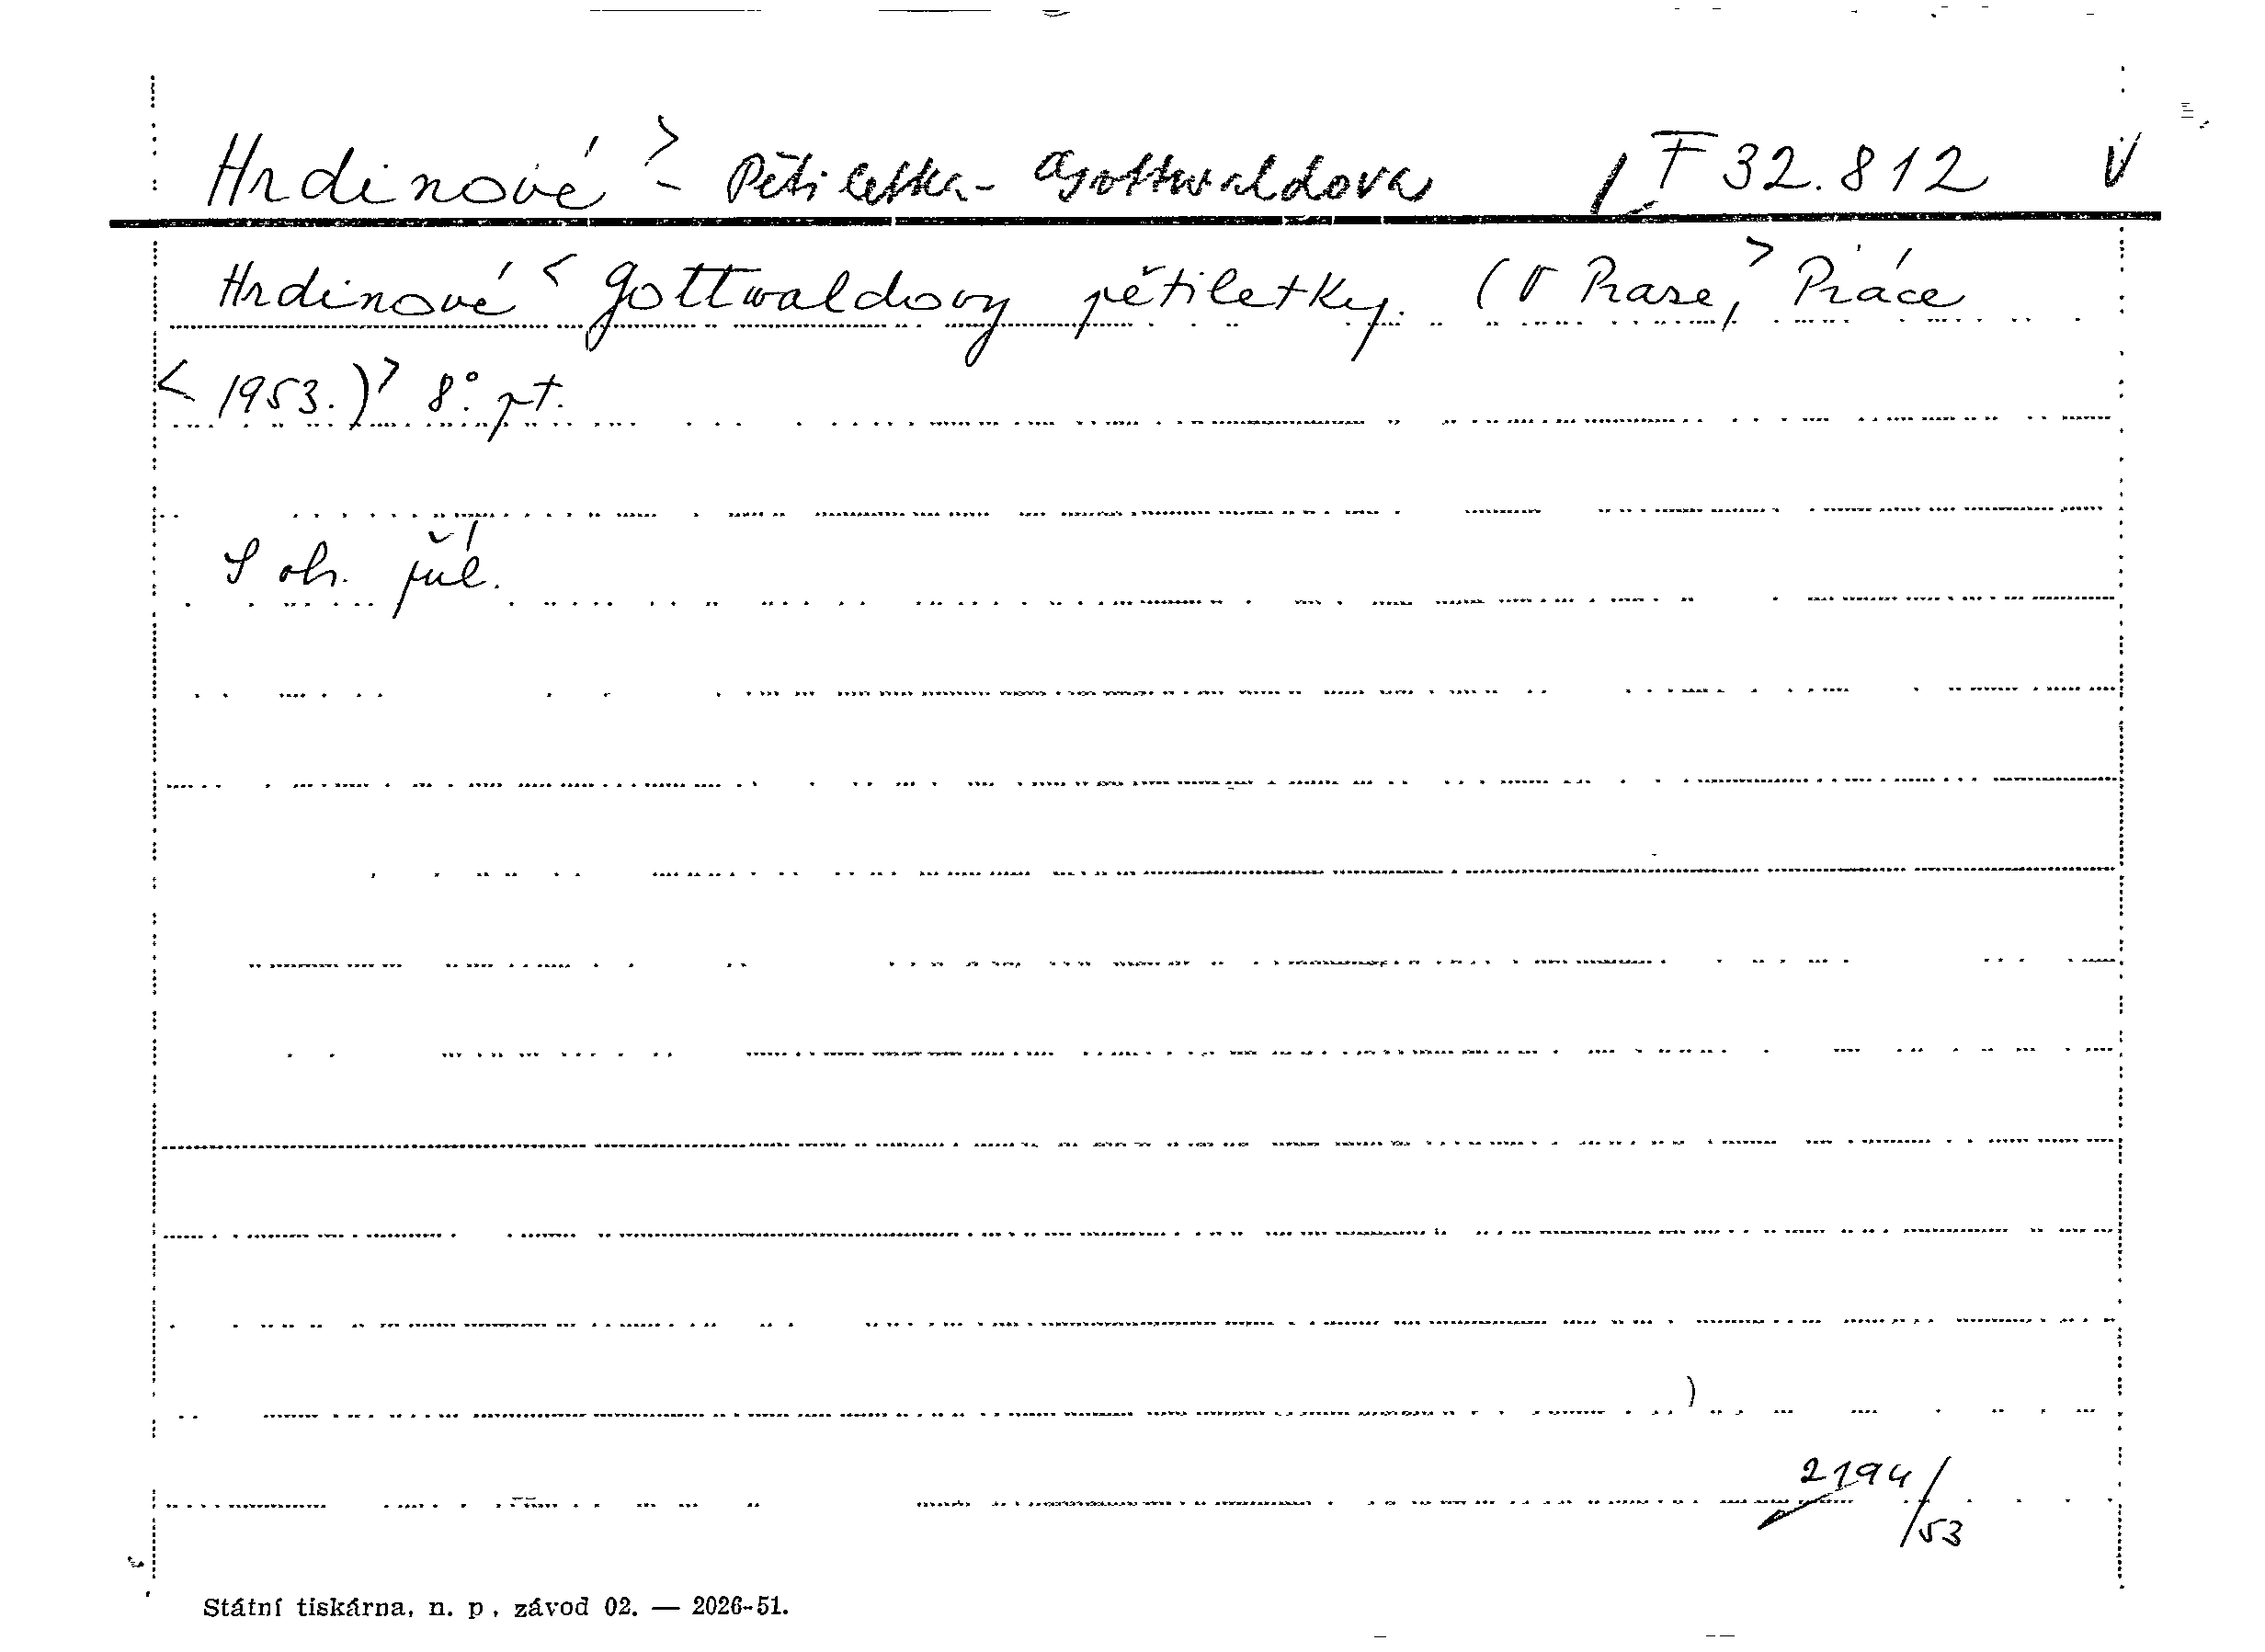 Hrdinové > - Pětiletka - Gottwaldova F 32.812 V
Hrdinové < Gottwaldovy pětiletky. (V Praze, > Práce
< 1953.) > 8°. pt.
S obr. příl.
2194/53
Státní tiskárna, n. p., závod 02. — 2026-51.